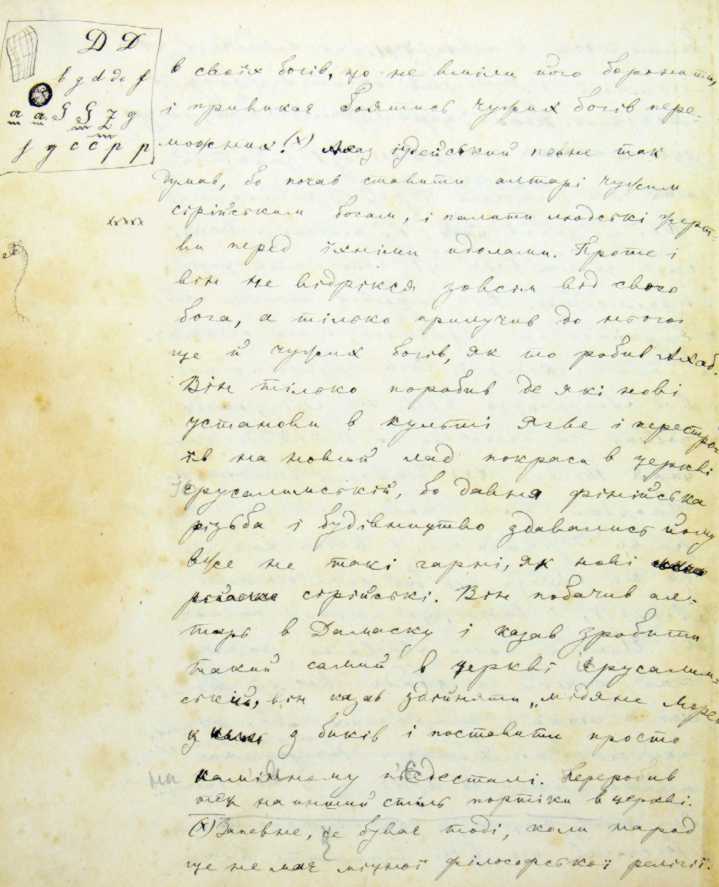 D D
b g d do f
a a g g 7 g
f g c c p p
в своїх богів, що не вміли його боронити,
і привикає боятись чужих богів пере-
можних! (x) Ахаз іудейський певне так
думав, бо почав ставити алтарі чужим
сірійським богам, і палити людські жерт-
ви перед їхніми идолами. Проте і
він не відрікся зовсім від свого
бога, а тілько прилучив до нього
ще й чужих богів, як то робив Ахаб.
Він тілько поробив де які нові
установи в культі Ягве і перестро-
їв на новий лад покраси в церкві
Єрусалимській, бо давня фінійська
різьба і будівництво здавались йому
вже не такі гарні, як нові
сірійські. Він побачив ал-
тарь в Дамаску і казав зробити
такий самий в церкві Єрусалим-
ській, він казав здойняти „мідяне море"
з биків і поставити просто
на камʼяному пʼєдесталі. Переробив
теж на инший стіль портіки в церкві.
(x) Запевне, це буває тоді, коли народ
ще не має міцної філософської релігії.